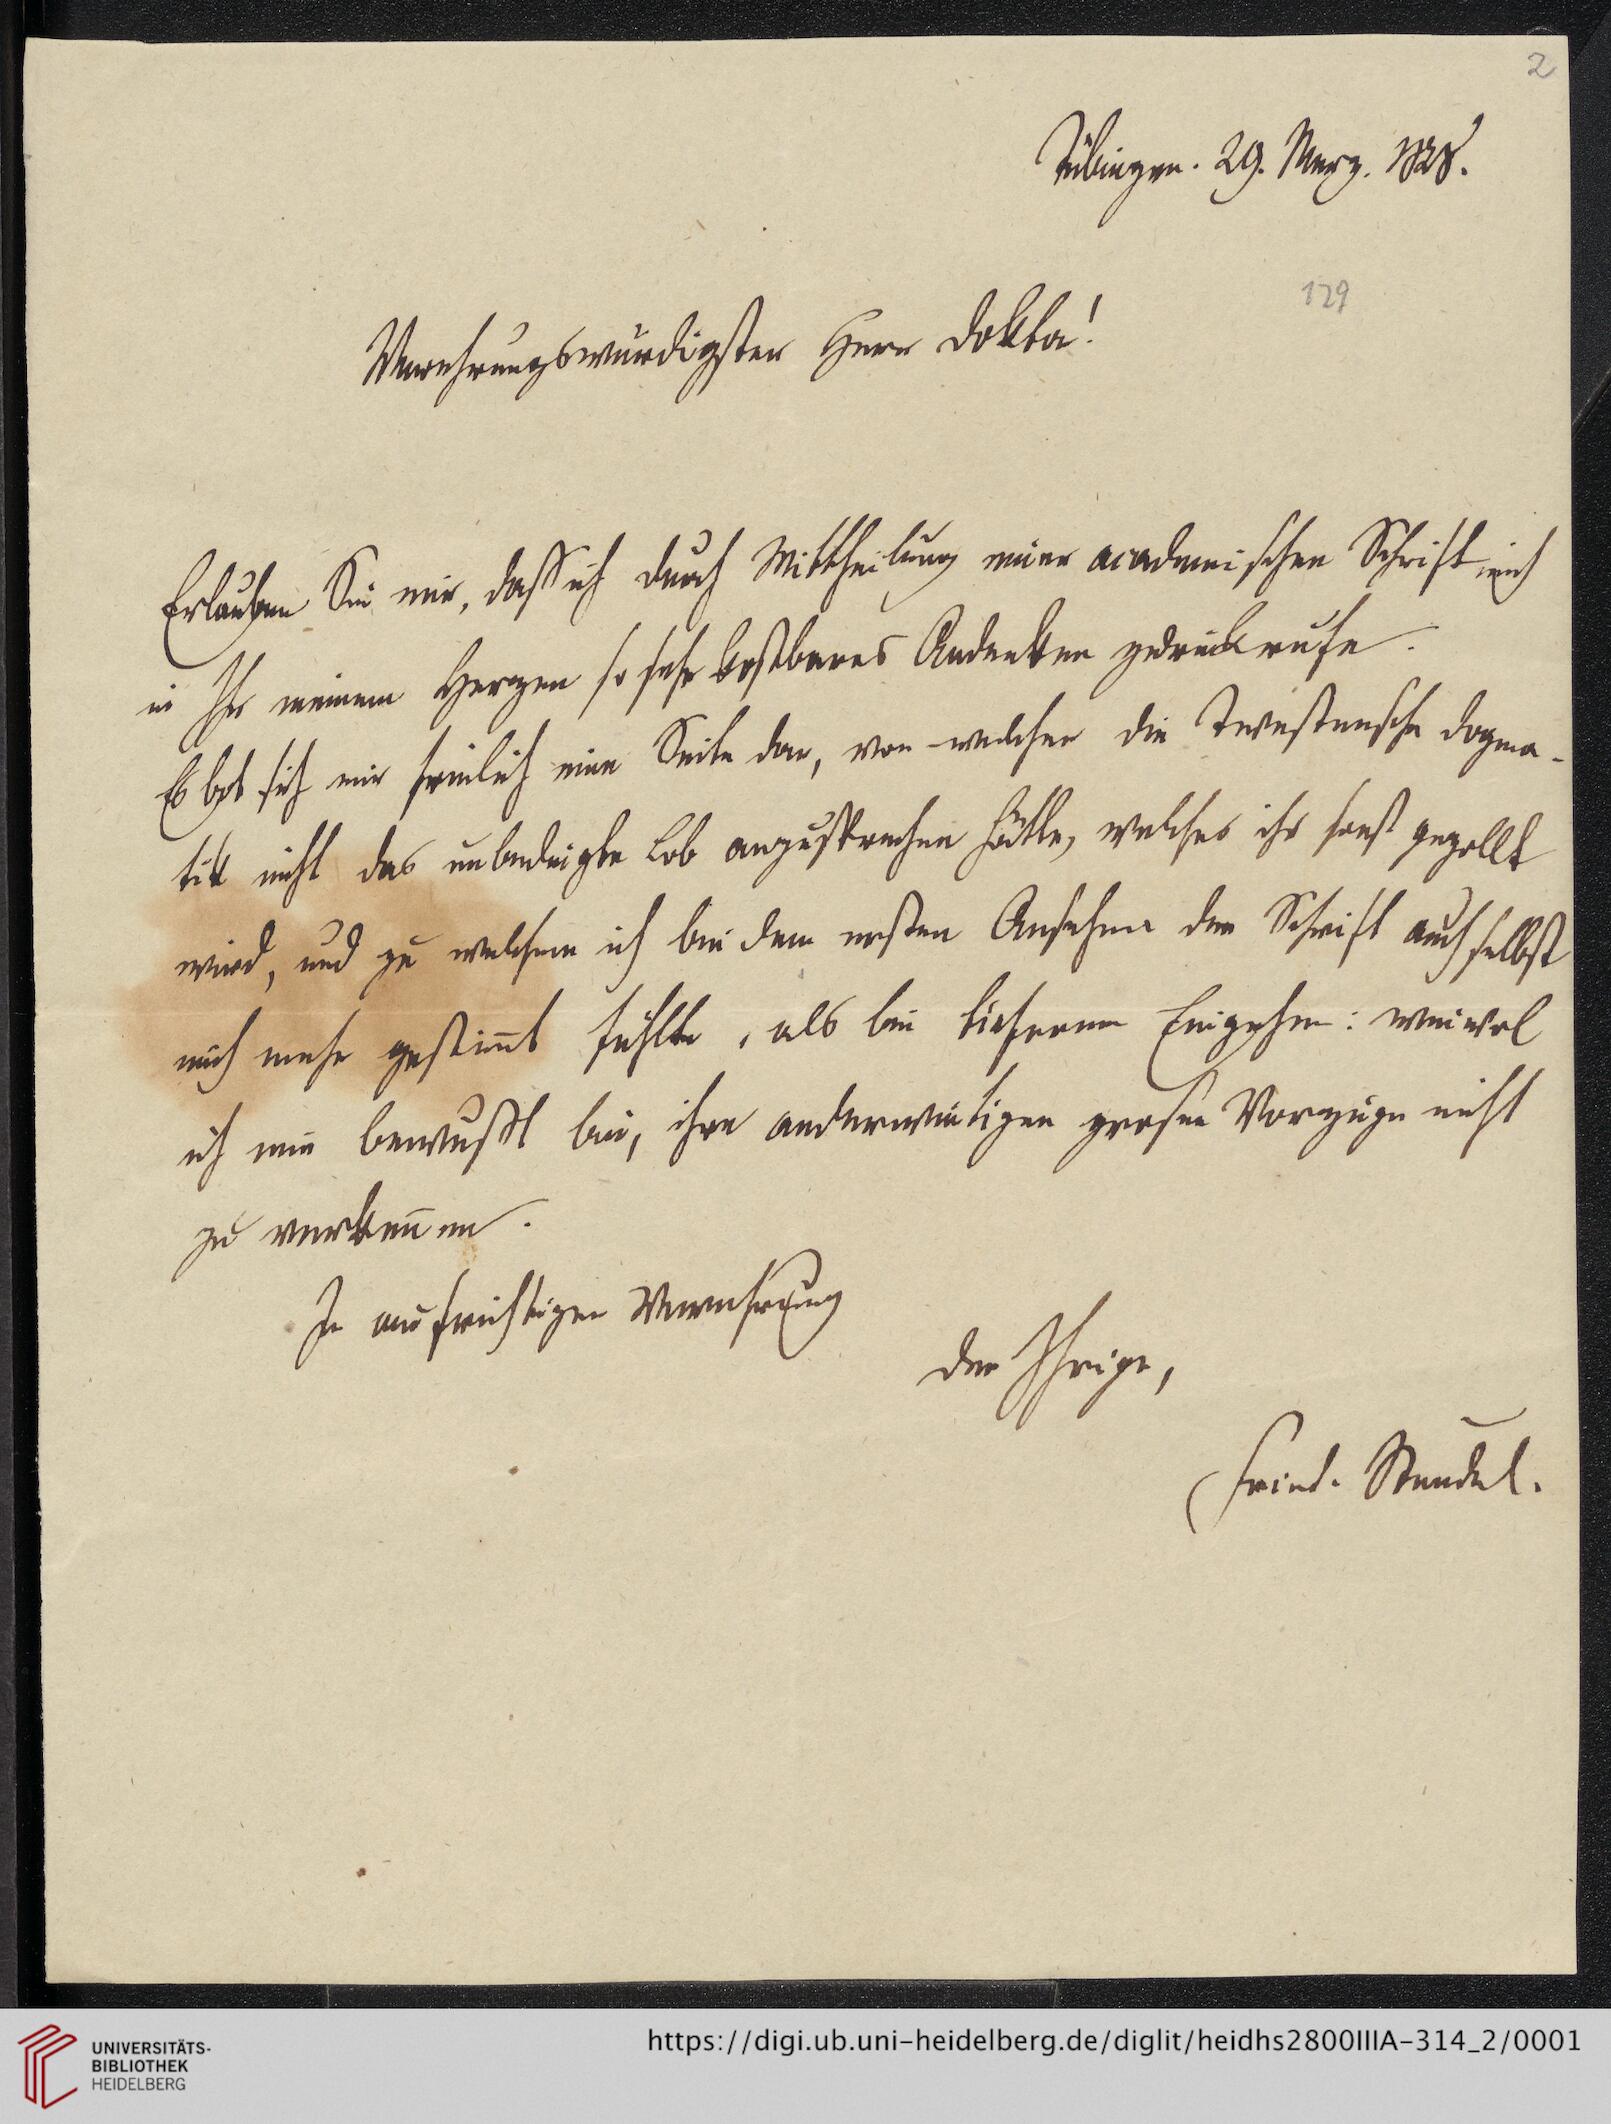 2
Tübingen. 29. Merz. 1828.
129
Verehrungswürdigster Herr Doktor!
Erlauben Sie mir, dass ich durch Mittheilung einer academischen Schrift mich
in Ihr meinem Herzen so sehr kostbares Andenken zurükrufe.
Es bot sich mir freilich eine Seite dar, von welcher die Twestensche Dogma-
tik nicht das unbedingte Lob anzusprechen hätte, welches ihr sonst gezollt
wird, und zu welchem ich bei dem ersten Ansehen der Schrift auch selbst
mich mehr gestim̄t fühlte, als bei tieferem Eingehen: wiewol
ich mir bewusst bin, ihre anderweitigen grosen Vorzüge nicht
zu verken̄en.
In aufrichtiger Verehrung
der Ihrige,
Fried. Steudel.
UNIVERSITÄTS-
BIBLIOTHEK
HEIDELBERG
https://digi.ub.uni-heidelberg.de/diglit/heidhs2800IIIA-314_2/0001